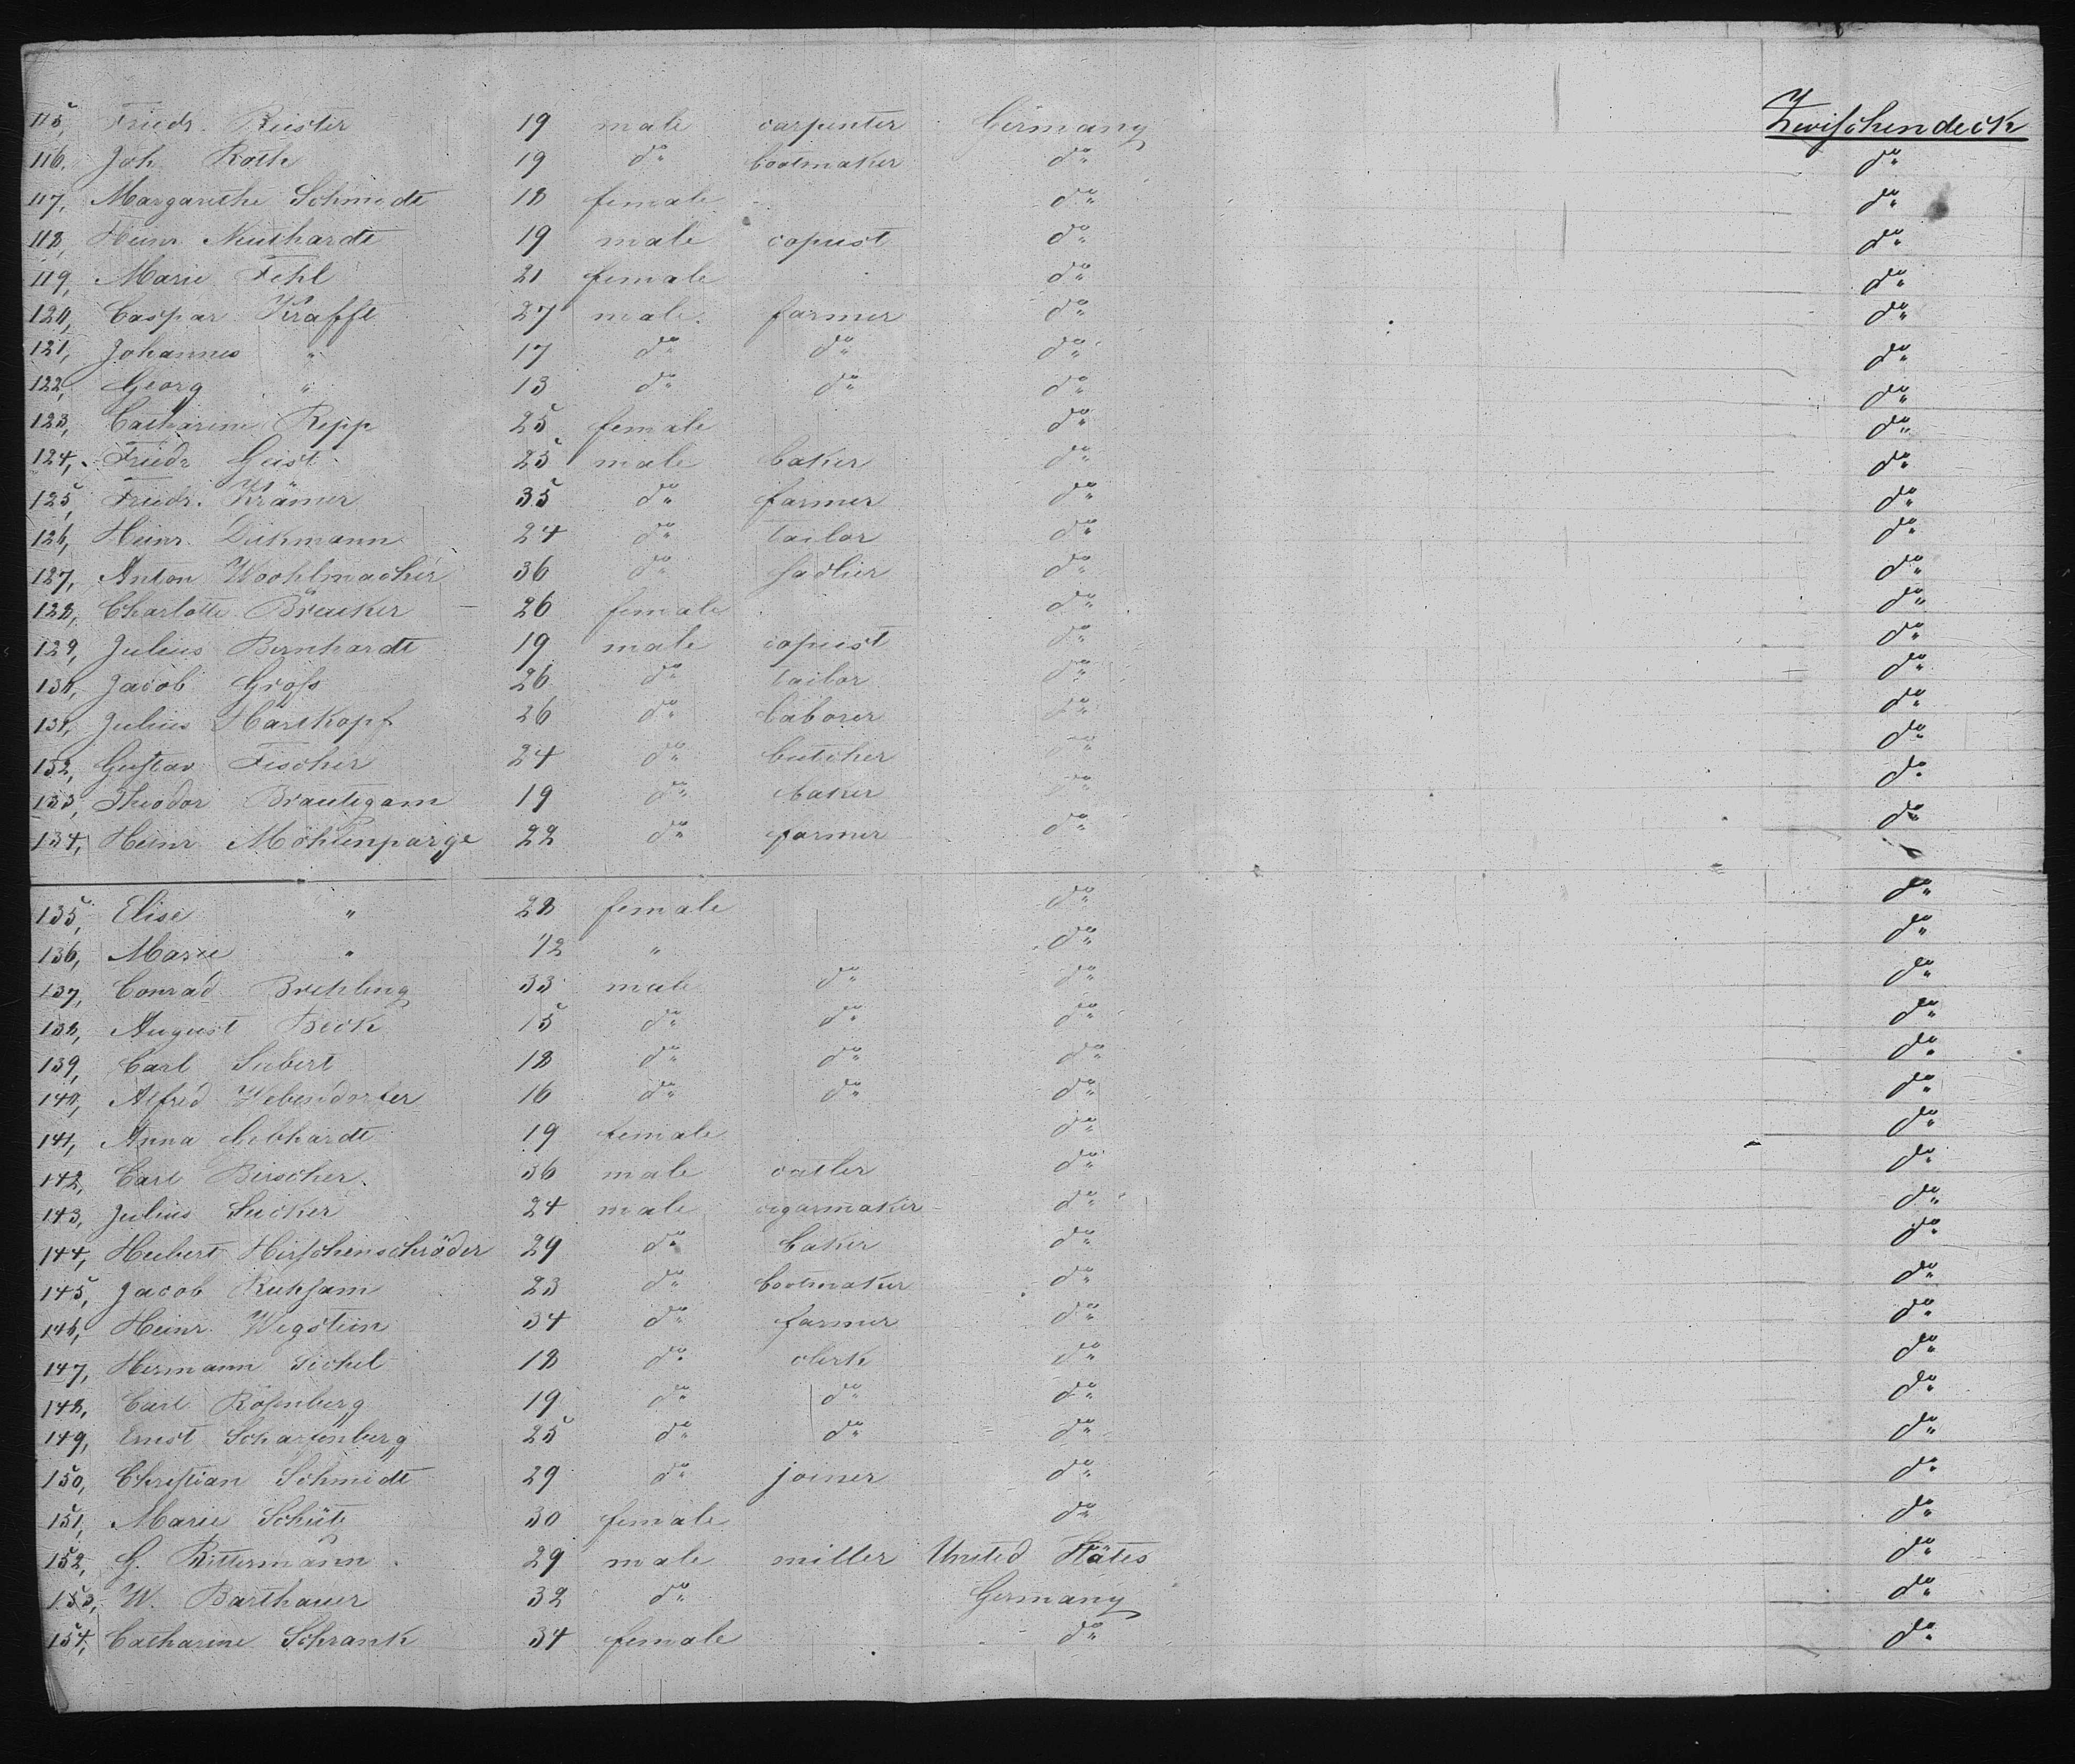 115, Friedr. Reister 19 male carpenter Germany Zwischendeck
116. Joh Roth 19 do bootmaker do do
117, Margarethe Schmidt 18 female do do
118, Heinr Neithardt 19 male copiist do do
119, Marie Fehl 21 female do do
120, Caspar Krafft 27 male farmer do do
121, Johannes " 17 do do do do
122, Georg " 13 do do do do
123, Catharine Repp 25 female do do
124, Friedr Geist 25 male baker do do
125, Friedr. Krämer 35 do farmer do do
126, Heinr. Diekmann 24 do tailor do do
127, Anton Woohlmacher 36 do sadlier do do
128, Charlotte Breuker 26 female do do
129, Julius Bernhardt 19 male copiist do do
130, Jacob Groß 26 do tailor do do
131, Julius Hartkopf 26 do laborer do do
132, Gustav Fischer 24 do butcher do do
133, Theodor Brautigam 19 do baker do do
134, Heinr Möhlenparge 22 do farmer do do
135, Elise " 28 female do do
136, Marie " 1/2 " do do
137, Conrad Brehling 33 male do do do
138, August Beck 15 do do do do
139, Carl Siebert 18 do do do do
140, Alfred 16 do do do do
141, Anna Gebhardt 19 female do do
142, Carl Bischer 36 male do do
143, Julius Sucker 24 male cigarmaker do do
144, Hubert Hirschenschröder 29 do baker do do
145, Jacob Ruhsam 23 do bootmaker do do
146, Heinr. Wegstein 34 do farmer do do
147, Hermann Sichel 18 do clerk do do
148, Carl Rosenberg 19 do do do do
149, Ernst Scharfenberg 25 do do do do
150, Christian Schmidt 29 do joiner do do
151, Marie Schütz 30 female do do
152, G. Rittermann 29 male miller United States do
153, W. Barthauer 32 do Germany do
154, Catharine Schrank 34 female do do